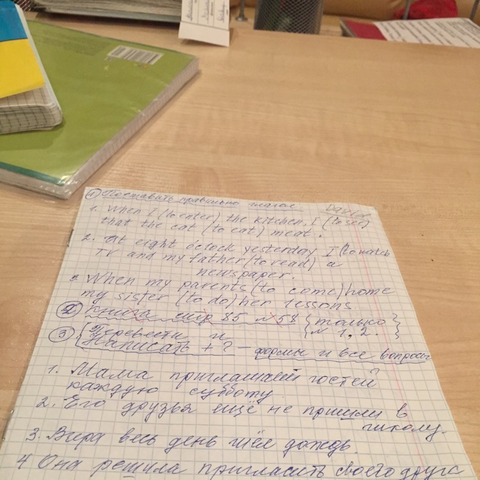 ① Поставить правильно глагол
1. When I (to enter) the kitchen, I (to see)
that the cat (to eat) meat.
2. At eight oclock yesterday I (to watch)
TV and my father (to read) a
newspaper.
3. When my parents (to come) home
my sister (to do) her lessons
② книга стр 85 №58 {только
№ 1, 2.}
③ {Перевести и
Написать + ? - формы и все вопросы
1. Мама приглашает гостей
каждую субботу
2. Его друзья еще не пришли в
школу.
3. Вчера весь день шёл дождь.
4 Она решила пригласить своего друга